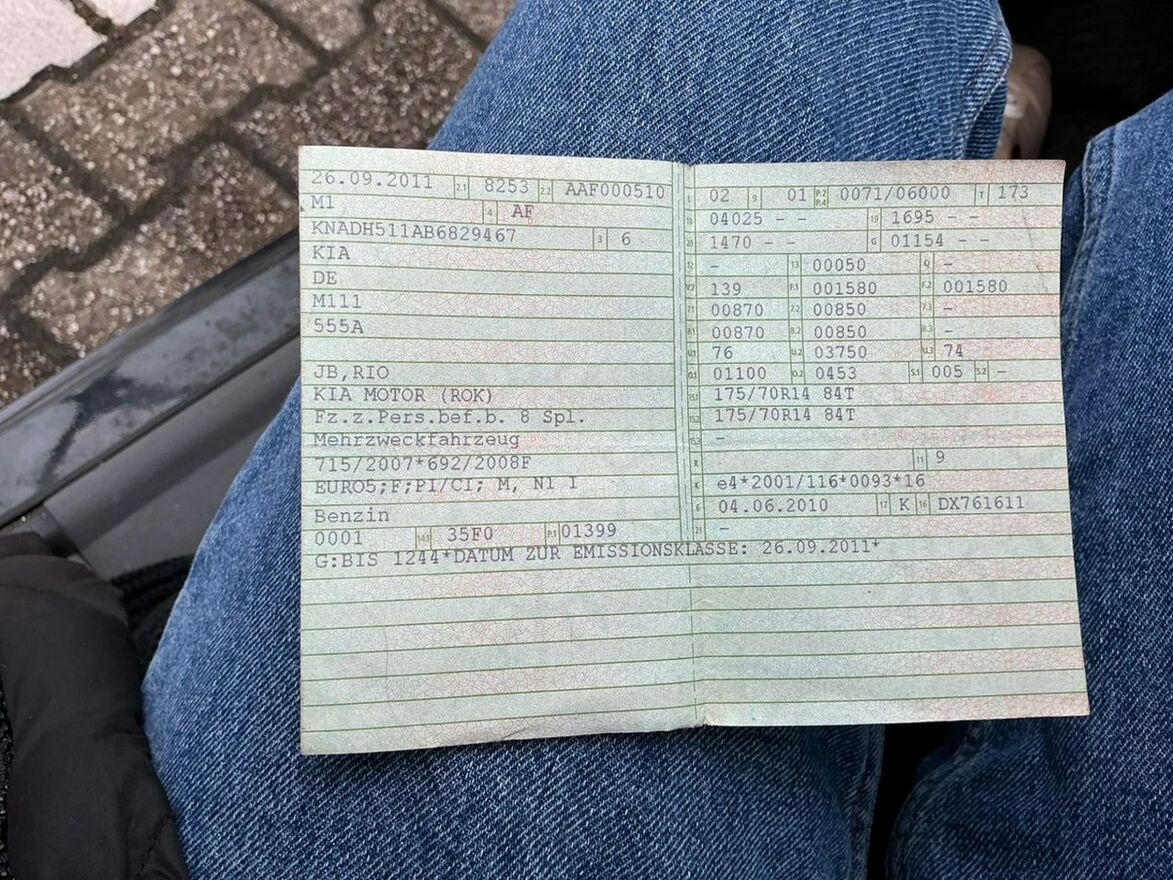 26.09.2011 2.1 8253 2.2 AAF000510
M1 4 AF
KNADH511AB6829467 3 6
KIA
DE
M111
555A
JB,RIO
KIA MOTOR (ROK)
Fz.z.Pers.bef.b. 8 Spl.
Mehrzweckfahrzeug
715/2007*692/2008F
EURO5;F;PI/CI; M, N1 I
Benzin
0001 14.1 35F0 P.1 01399
L 02 9 01 P.2 P.4 0071/06000 T 173
18 04025 - - 19 1695 - -
20 1470 - - G 01154 - -
12 - 13 00050 Q -
V.7 139 F.1 001580 F.2 001580
7.1 00870 7.2 00850 7.3 -
8.1 00870 8.2 00850 8.3 -
U.1 76 U.2 03750 U.3 74
O.1 01100 O.2 0453 S.1 005 S.2 -
15.1 175/70R14 84T
15.2 175/70R14 84T
15.3 -
R 11 9
K e4*2001/116*0093*16
6 04.06.2010 17 K 16 DX761611
21 -
G:BIS 1244*DATUM ZUR EMISSIONSKLASSE: 26.09.2011*